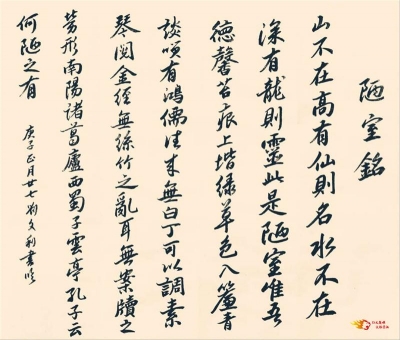 陋室銘
山不在高有仙則名水不在
深有龍則靈此是陋室唯吾
德馨苔痕上堦緑草色入簾青
談咲有鴻儒往来無白丁可以調素
琴閱金經無絲竹之亂耳無案牘之
勞形南陽諸葛廬西蜀子雲亭孔子云
何陋之有
庚子正月廿七劉文利書